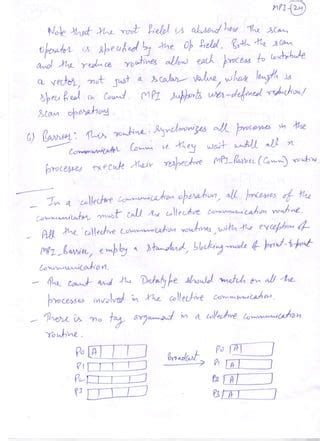 MPI-(24)
Note that the root field is absent here. The scan
operator is specified by the Op field. Both the scan
and the reduce routines allow each process to contribute
a vector, not just a scalar value, whose length is
specified in Count. MPI supports user-defined reduction/
scan operations.
6) Barrier: This routine synchronizes all processes in the
communicator Comm ie they wait untill all n
processes execute their respective MPI_Barrier (Comm) routine.
- In a collective communication operation, all processes of the
communicator must call the collective communication routine.
- All the collective communication routines, with the exception of
MPI_Barrier, employ a standard, blocking mode of point-to-point
communication.
- The count and the Datatype should match on all the
processes involved in the collective communication.
- There is no tag argument in a collective communication
routine.
P0 A Broadcast P0 A
P1 P1 A
P2 P2 A
P3 P3 A